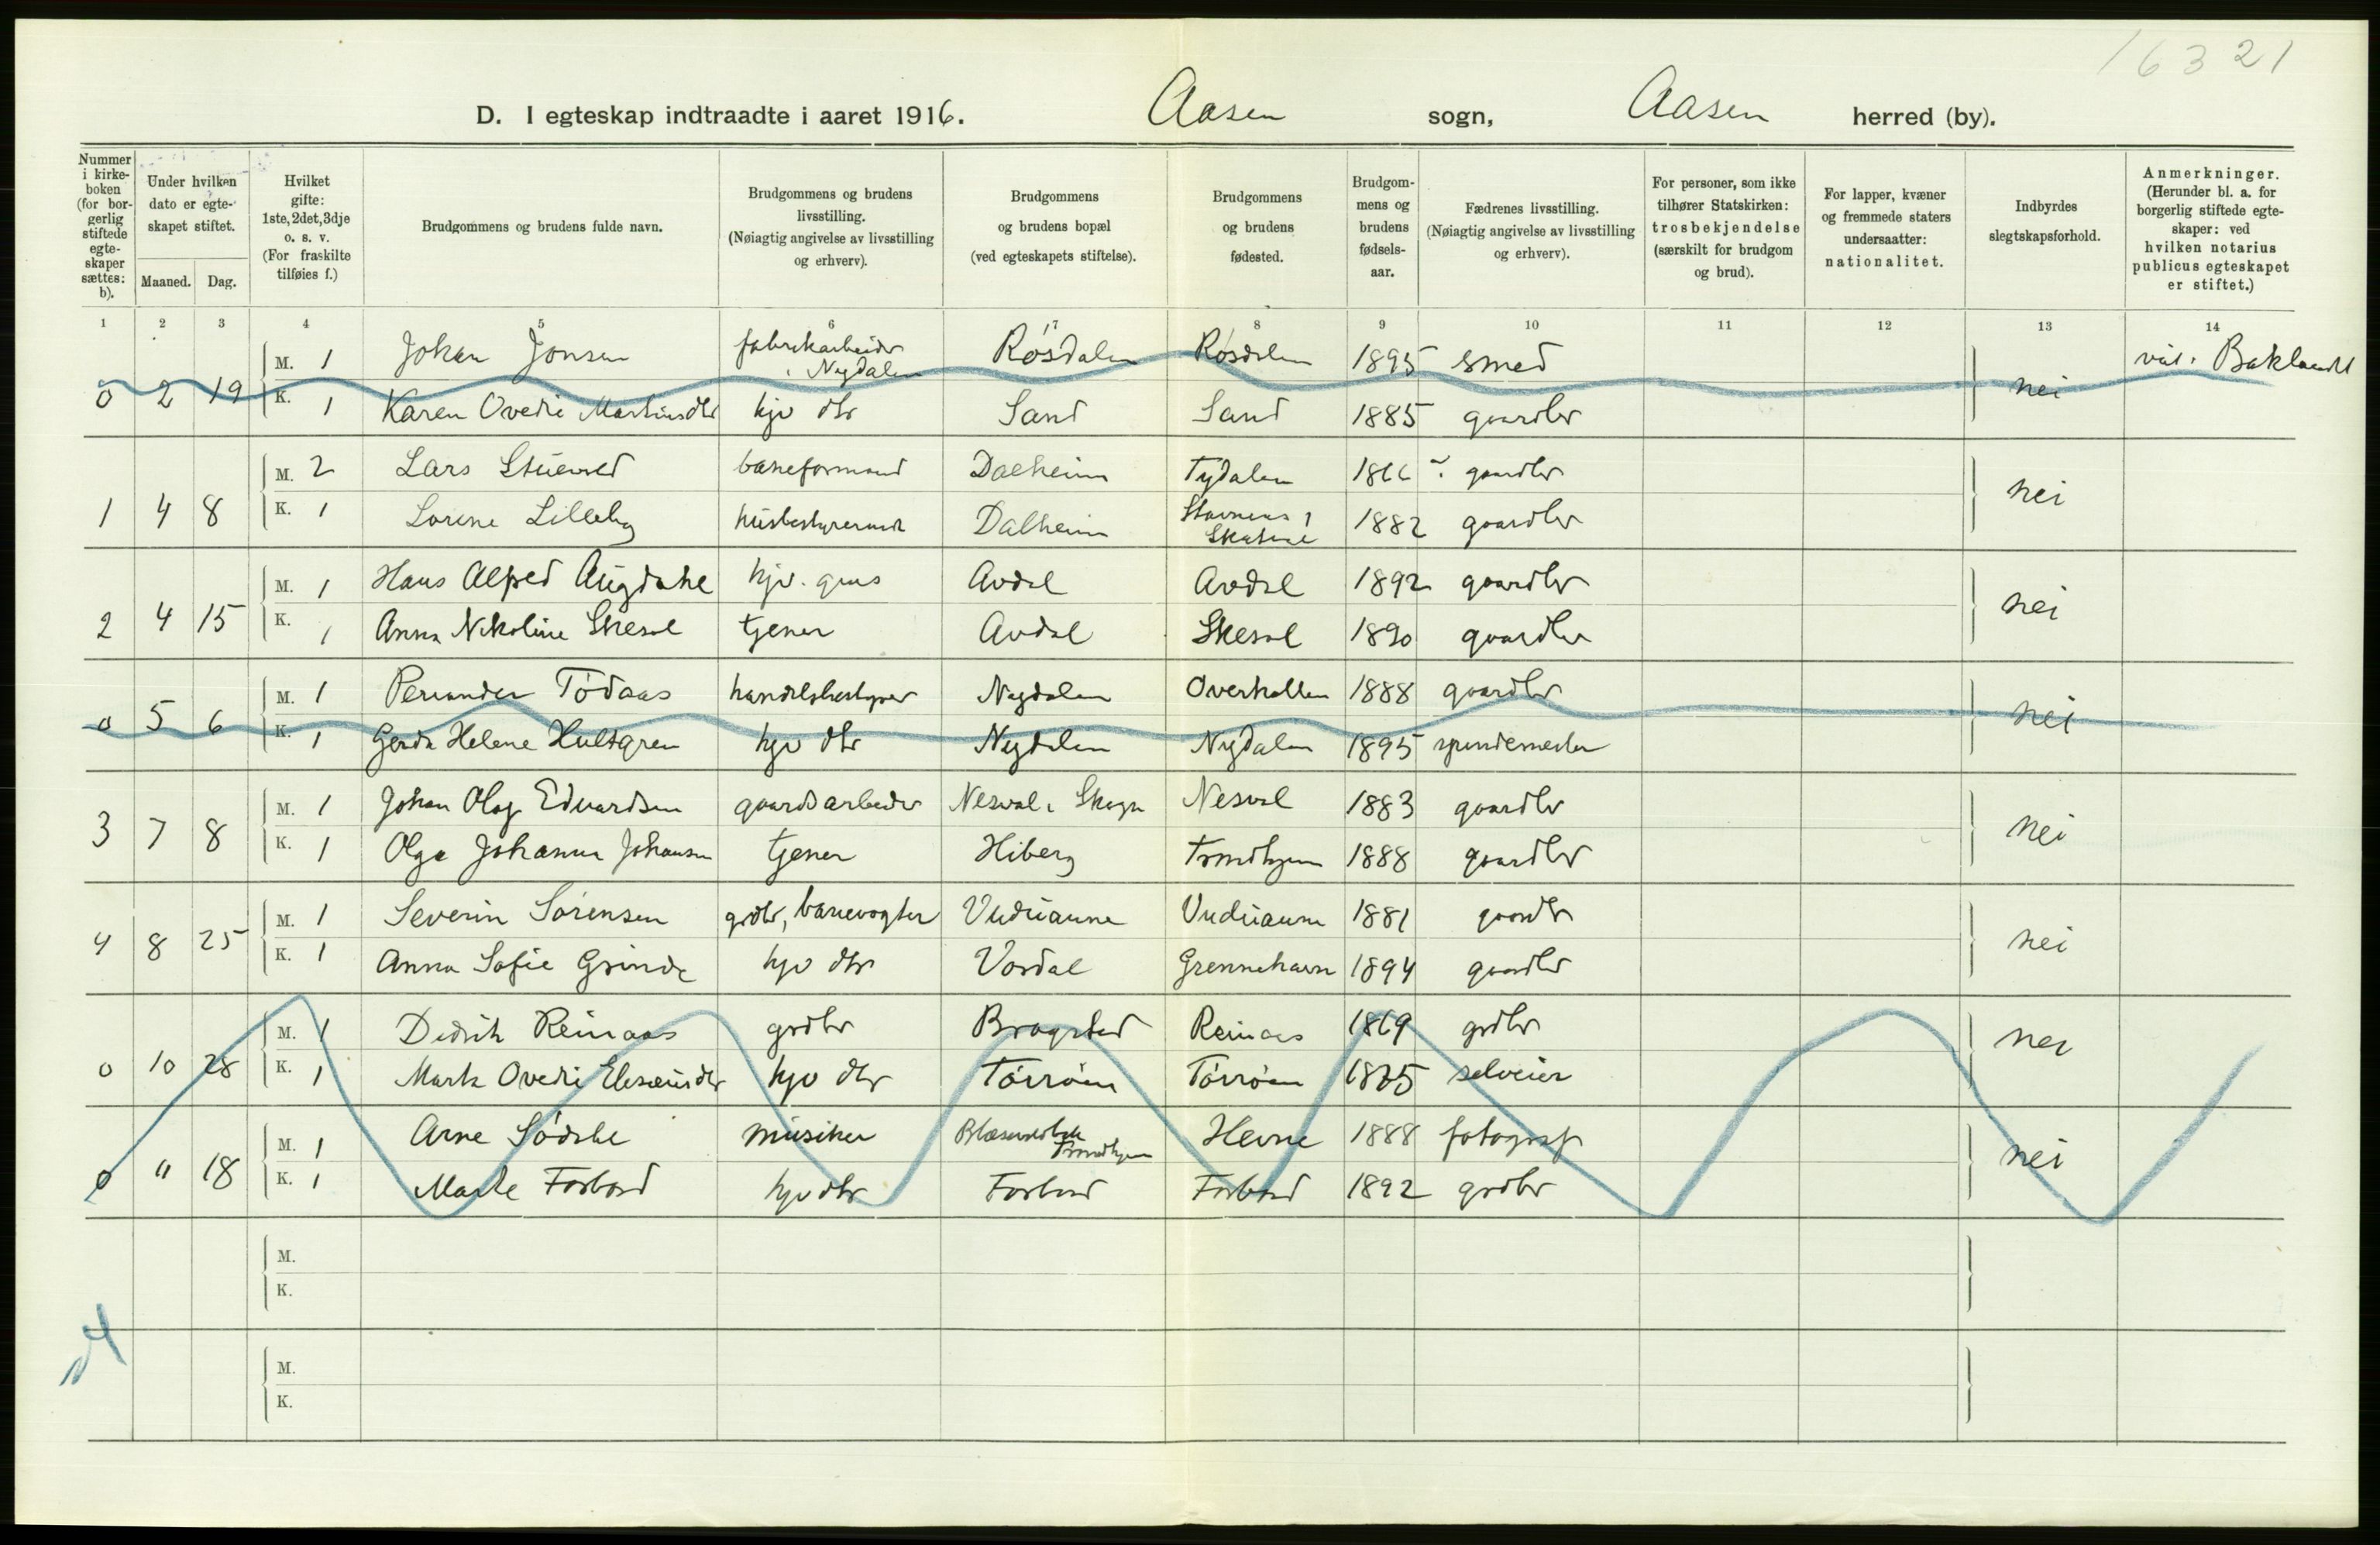 16321
D. I egteskap indtraadte i aaret 1916. Aasen sogn, Aasen herred (by).
Nummer i kirke-boken (for bor-gerlig stiftede egte-skaper sættes: b).
Under hvilken dato er egte-skapet stiftet.
Maaned. Dag.
Hvilket gifte: 1ste, 2det, 3dje o. s. v. (For fraskilte tilføies f.)
Brudgommens og brudens fulde navn.
Brudgommens og brudens livsstilling. (Nøiagtig angivelse av livsstilling og erhverv).
Brudgommens og brudens bopæl (ved egteskapets stiftelse).
Brudgommens og brudens fødested.
Brudgom-mens og brudens fødsels-aar.
Fædrenes livsstilling. (Nøiagtig angivelse av livsstilling og erhverv).
For personer, som ikke tilhører Statskirken: trosbekjendelse (særskilt for brudgom og brud).
For lapper, kvæner og fremmede staters undersaatter: nationalitet.
Indbyrdes slegtskapsforhold.
Anmerkninger. (Herunder bl. a. for borgerlig stiftede egte-skaper: ved hvilken notarius publicus egteskapet er stiftet.)
1 2 3 4 5 6 7 8 9 10 11 12 13 14
M. 1 Johan Jonsen fabrikarbeider i Nydalen Røsdalen Røsdalen 1895 smed
0 2 19 K. 1 Karen Ovedie Martinsdtr hjv dtr Sand Sand 1885 gaardbr nei
M. 2 Lars Stuevold baneformand Dalheim Tydalen gaardbr
1 4 8 K. 1 Lorine Lilleby husbestyrerinde Dalheim 1882 gaardbr nei
M. 1 Hans Alfred hjv. Avdal Avdal 1892 gaardbr
2 4 15 K. 1 Anna Nikoline tjener Avdal 1890 gaardbr nei
M. 1 Tødaas handelsbestyrer Nydalen Overhallen 1888 gaardbr
0 5 6 K. 1 Gerda Helene Hultgren hjv dtr Nydalen Nydalen 1895 spindemester nei
M. 1 Johan Olaf Edvardsen gaardsarbeider Nesval i Skogn Nesval 1883 gaardbr
3 7 8 K. 1 Olga Johanna Johansen tjener Hiberg Trondhjem 1888 gaardbr nei
M. 1 Severin Sørensen grdbr, banevogter Vuduaune Vuduaune 1881 gaardbr
4 8 25 K. 1 Anna Sofie Grinde hjv dtr Vordal 1894 gaardbr nei
M. 1 Didrik Reinaas grdbr Bragstad Reinaas 1869 grdbr
0 10 28 K. 1 Ovedie hjv dtr Tørrøen Tørrøen selveier nei
M. 1 Arne musiker Trondhjem Hevne 1888 fotograf
0 " 18 K. 1 Marte Forbord hjv dtr Forbord Forbord 1892 grdbr nei
M.
K.
M.
K.